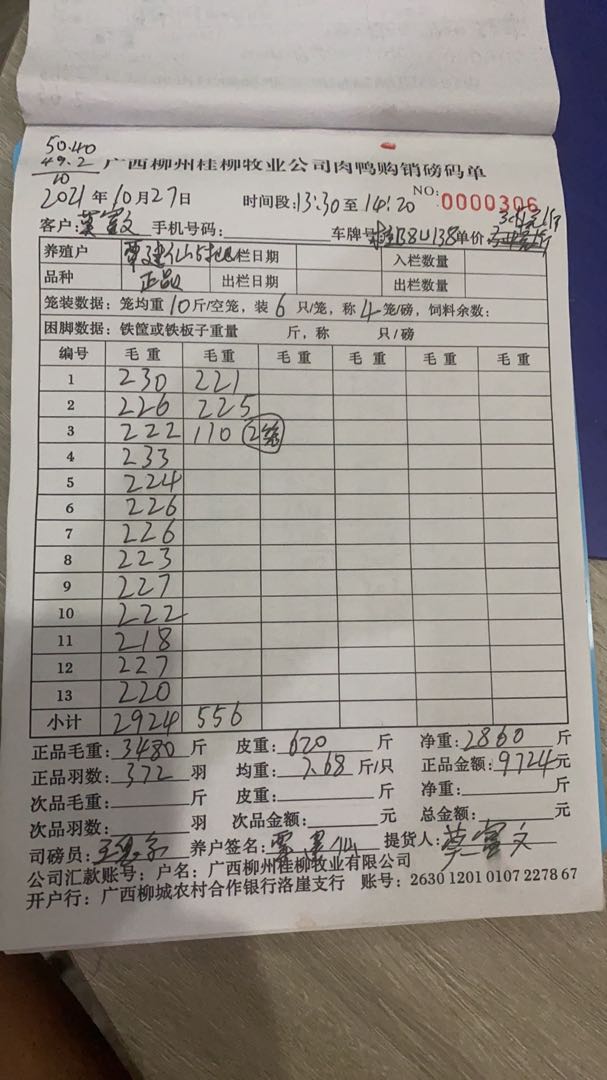 50.40
49.2
10
广西柳州桂柳牧业公司肉鸭购销磅码单
2021年10月27日 时间段:13:30至14:20 NO:0000306
客户: 莫富文 手机号码: 车牌号 138U138 单价
养殖户 覃建仙 栏日期 入栏数量
品种 正品 出栏日期 出栏数量
笼装数据: 笼均重10斤/空笼, 装6只/笼, 称4笼/磅, 饲料余数:
困脚数据: 铁筐或铁板子重量 斤, 称 只/磅
编号 毛重 毛重 毛重 毛重 毛重 毛重
1 230 221
2 226 225
3 222 110 2笼
4 233
5 224
6 226
7 226
8 223
9 227
10 222
11 218
12 227
13 220
小计 2924 556
正品毛重: 3480 斤 皮重: 620 斤 净重: 2860 斤
正品羽数: 372 羽 均重: 7.68 斤/只 正品金额: 9724元
次品毛重: 斤 皮重: 斤 净重: 斤
次品羽数: 羽 次品金额: 元 总金额: 元
司磅员: 养户签名: 覃建仙 提货人: 莫富文
公司汇款账号: 户名: 广西柳州桂柳牧业有限公司
开户行: 广西柳城农村合作银行洛崖支行 账号: 2630 1201 0107 2278 67